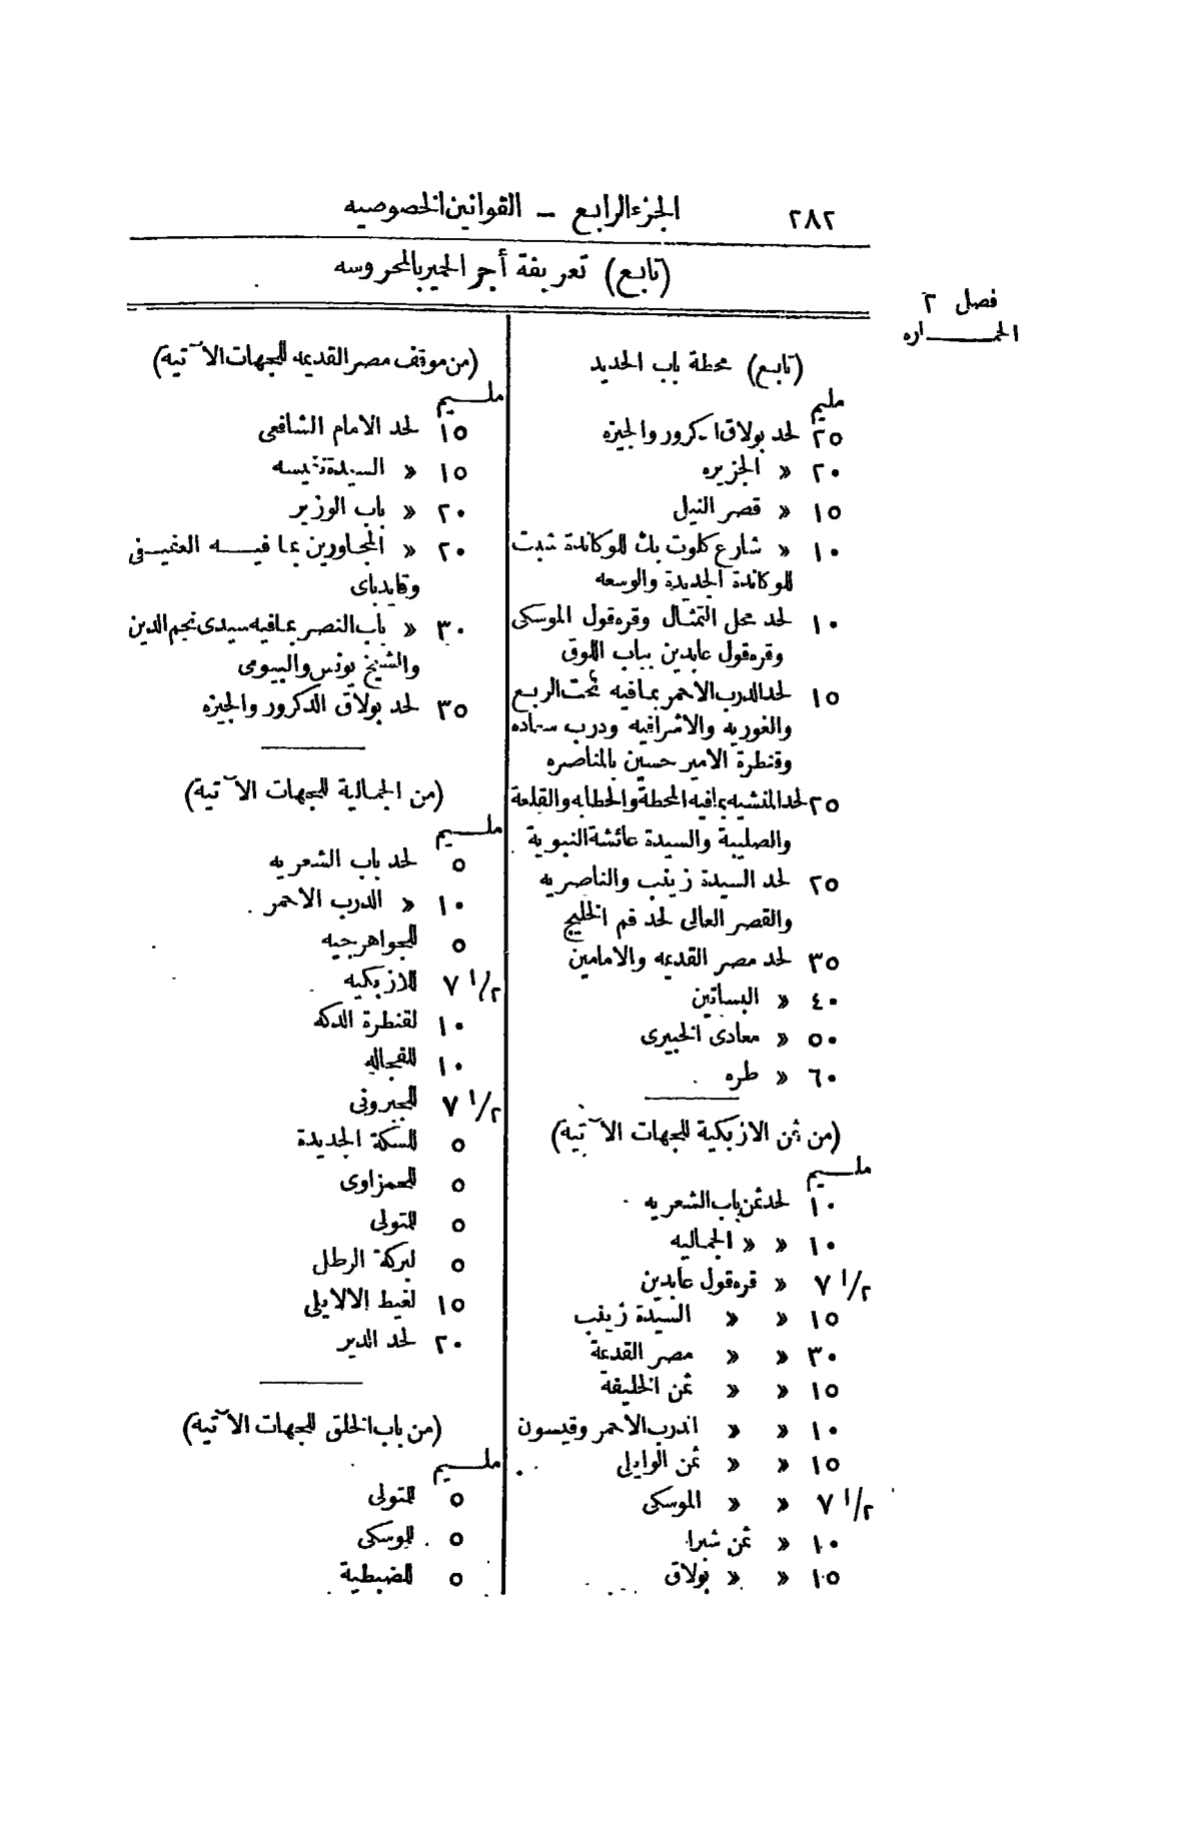 ٢٨٢
الجزء الرابع — القوانين الخصوصيه
(تابع) تعريفة أجر الحمير بالمحروسه
فصل ٢
الحماره
(تابع) محطة باب الحديد
مليم
٢٥ لحد بولاق الدكرور والجيزه
٢٠ » الجزيره
١٥ » قصر النيل
١٠ » شارع كلوت بك للوكاندة شبت
للوكاندة الجديدة والوسعه
١٠ لحد محل التمثال وقره قول الموسكى
وقره قول عابدين بباب اللوق
١٥ لحد الدرب الاحمر بما فيه تحت الربع
والغوريه والاشرافيه ودرب سعاده
وقنطرة الامير حسين بالمناصره
٢٥ لحد المنشيه بما فيه المحطة والحطابه والقلعة
والصليبة والسيدة عائشة النبوية
٢٥ لحد السيدة زينب والناصريه
والقصر العالى لحد فم الخليج
٣٥ لحد مصر القديمه والامامين
٤٠ » البساتين
٥٠ » معادى الخبيرى
٦٠ » طره
(من ثمن الازبكية للجهات الآتية)
مليم
١٠ لحد ثمن باب الشعريه
١٠ » » الجماليه
٧ ١/٢ » قره قول عابدين
١٥ » » السيدة زينب
٣٠ » » مصر القديمة
١٥ » » ثمن الخليفة
١٠ » » الدرب الاحمر وقيسون
١٥ » » ثمن الوايلى
٧ ١/٢ » » الموسكى
١٠ » ثمن شبرا
١٥ » » بولاق
(من موقف مصر القديمه للجهات الآتية)
مليم
١٥ لحد الامام الشافعى
١٥ » السيدة نفيسه
٢٠ » باب الوزير
٢٠ » المجاورين بما فيه العفيفى
وقايدباى
٣٠ » باب النصر بما فيه سيدى نجم الدين
والشيخ يونس والبيومى
٣٥ لحد بولاق الدكرور والجيزه
(من الجمالية للجهات الآتية)
مليم
٥ لحد باب الشعريه
١٠ » الدرب الاحمر
٥ للجواهرجيه
٧ ١/٢ للازبكيه
١٠ لقنطرة الدكه
١٠ للفجاله
٧ ١/٢ للجبرونى
٥ للسكة الجديدة
٥ للحمزاوى
٥ للمتولى
٥ لبركة الرطل
١٥ لغيط الالايلى
٢٠ لحد الدير
(من باب الخلق للجهات الآتية)
مليم
٥ للمتولى
٥ للموسكى
٥ للضبطية